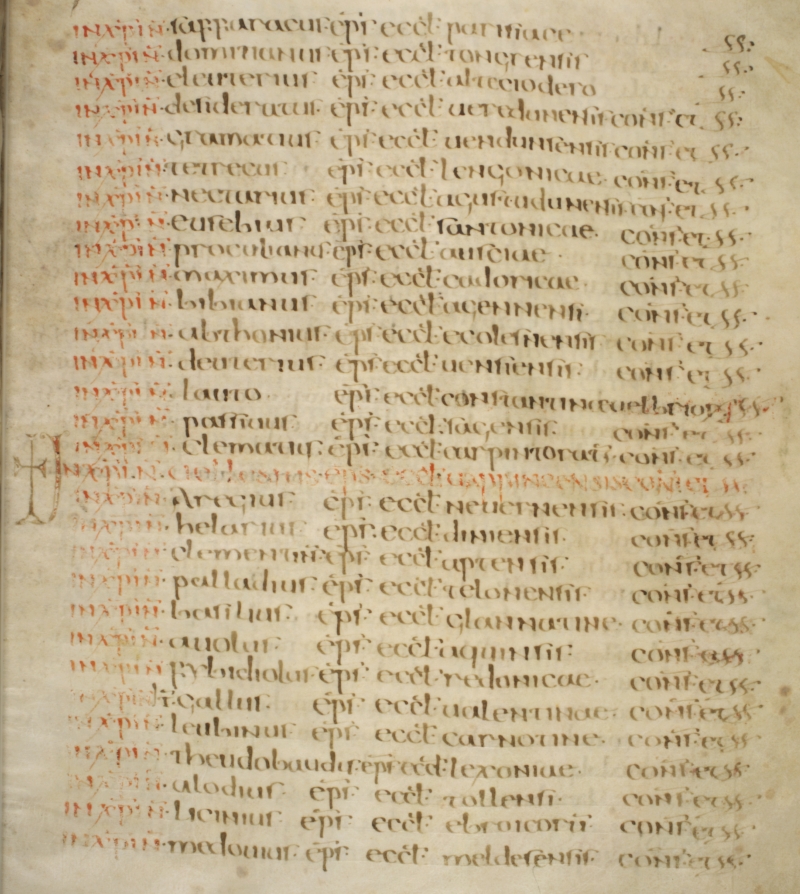 in xpi n· sapparacus· epis eccl· parisiace· ss·
in xpi n· domitianus epis· eccl· tongrensis ss·
in xpi n· eleuterius epis· eccl· aticciodero ss·
in xpi n· desideratus· epis· eccl· aerodonensis cons et ss·
in xpi n· gramatius epis· eccl· uendunensis cons et ss·
in xpi n· tetrecus epis· eccl· lengonicae cons et ss·
in xpi n· nectarius· epis· eccl· agustadunensis cons et ss·
in xpi n· eusebius epis· eccl· santonicae· cons et ss·
in xpi n· procubanus epis· eccl· ausciae· cons et ss·
in xpi n· maximus epis· eccl· cadoricae cons et ss·
in xpi n· bibianus epis· eccl· agennensi· cons et ss·
in xpi n· abthonius· epis· eccl· ecolesinensis cons et ss·
in xpi n· deuterius· epis· eccl· uensiensis· cons et ss·
in xpi n· lauto epis· eccl· constantina uel brioue ss·
in xpi n· passiuus epis· eccl· sagensis· cons et ss·
in xpi n· clematius· epis· eccl· carpintoratis cons et ss·
In xpi n· uellesius epis eccl uappincensis cons et ss
in xpi n· Aregius epis· eccl· neuernensis· cons et ss
in xpi n· helarius epis· eccl· dinensis· cons et ss·
in xpi n· clementinus epis· eccl· aptensis cons et ss·
in xpi n· palladius epis· eccl· telonensis cons et ss
in xpi n· basilius· epis· eccl· glannatine· cons et ss·
in xpi n· auolus epis· eccl· aquinsis· cons et ss
in xpi n· uptemporary
in xpi n· gallus· epis· eccl· ualentinae· cons et ss·
in xpi n· leubinus epis· eccl· carnotine· cons et ss
in xpi n· theudobaudis epis eccl· lexoniae· cons et ss
in xpi n· alodius· epis· eccl· tollensi· cons et ss·
in xpi n· licinius epis· eccl· ebroicoris cons et ss·
in xpi n· medouius· epis· eccl· meldesensis· cons et ss·